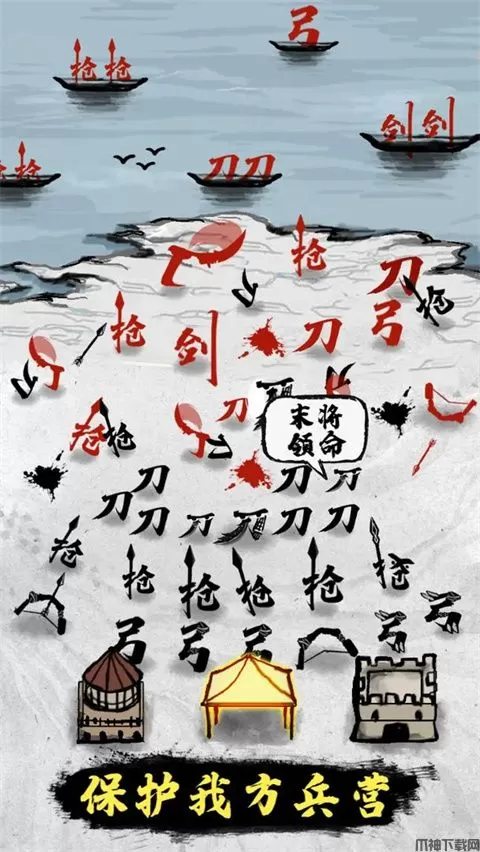 弓
枪枪
剑剑
枪
刀刀
枪
刀
枪
枪
剑
刀
弓
刀
枪
枪
末将
领命
刀
刀
刀
刀
刀
刀
刀
刀
枪
枪
枪
枪
枪
枪
弓
弓
弓
弓
弓
保护我方兵营
爪神下载网